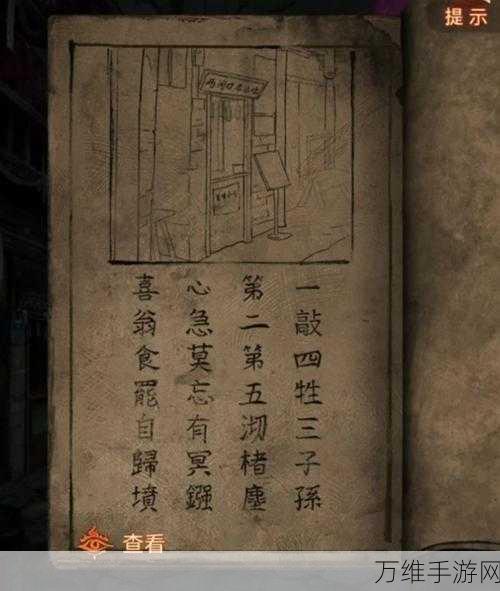 提示
一敲四牲三子孫
第二第五沏楮塵
心急莫忘有冥鏹
喜翁食罷自歸墳
查看
万维手游网